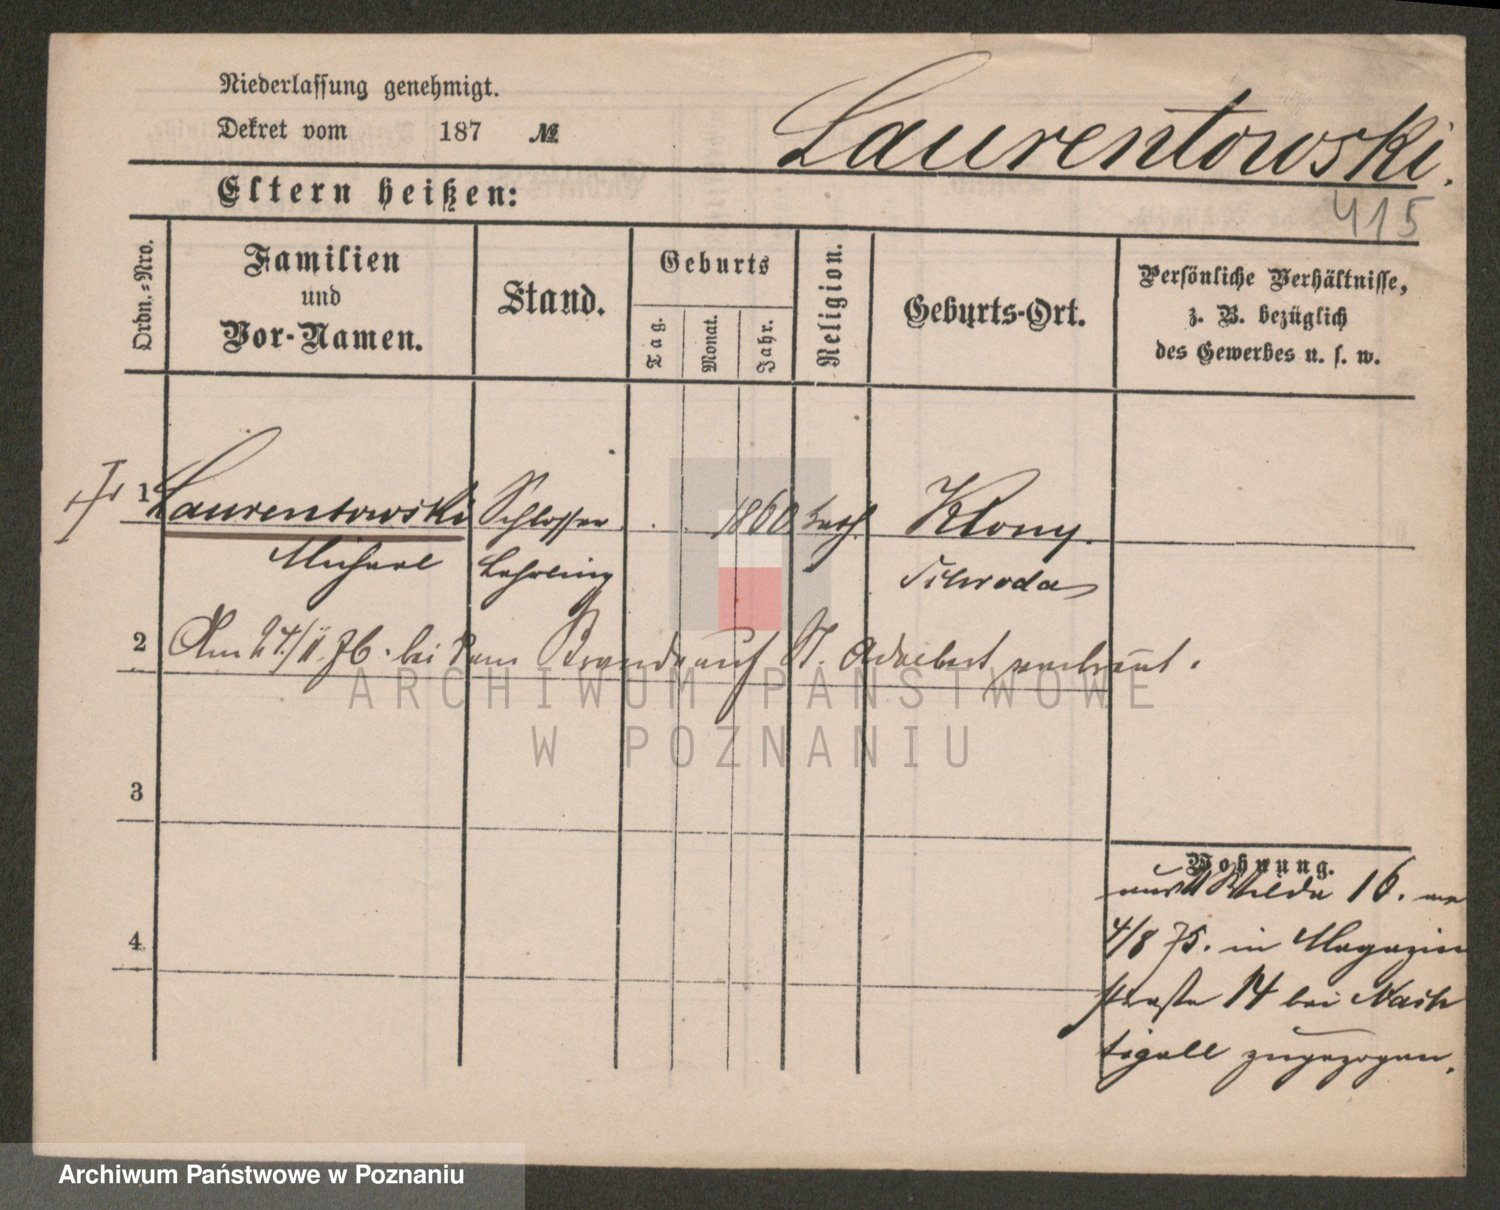 Niederlassung genehmigt.
Dekret vom 187 №
Laurentowski.
415
Eltern heißen:
Ordn.-Nro.
Familien
und
Vor-Namen.
Stand.
Geburts
Tag.
Monat.
Jahr.
Religion.
Geburts-Ort.
Persönliche Verhältnisse,
z. B. bezüglich
des Gewerbes u. s. w.
1 Laurentowski Schlosser 1860 kath. Klony.
Michael Lehrling Schroda
2 Am 24/II. 76. bei dem Brande auf St. Adalbert verbrannt.
ARCHIWUM PAŃSTWOWE
W POZNANIU
3
4
Wohnung.
Wilda 16.
4/8 75. in Magazin
straße 14 bei Nach
tigall zugezogen.
Archiwum Państwowe w Poznaniu